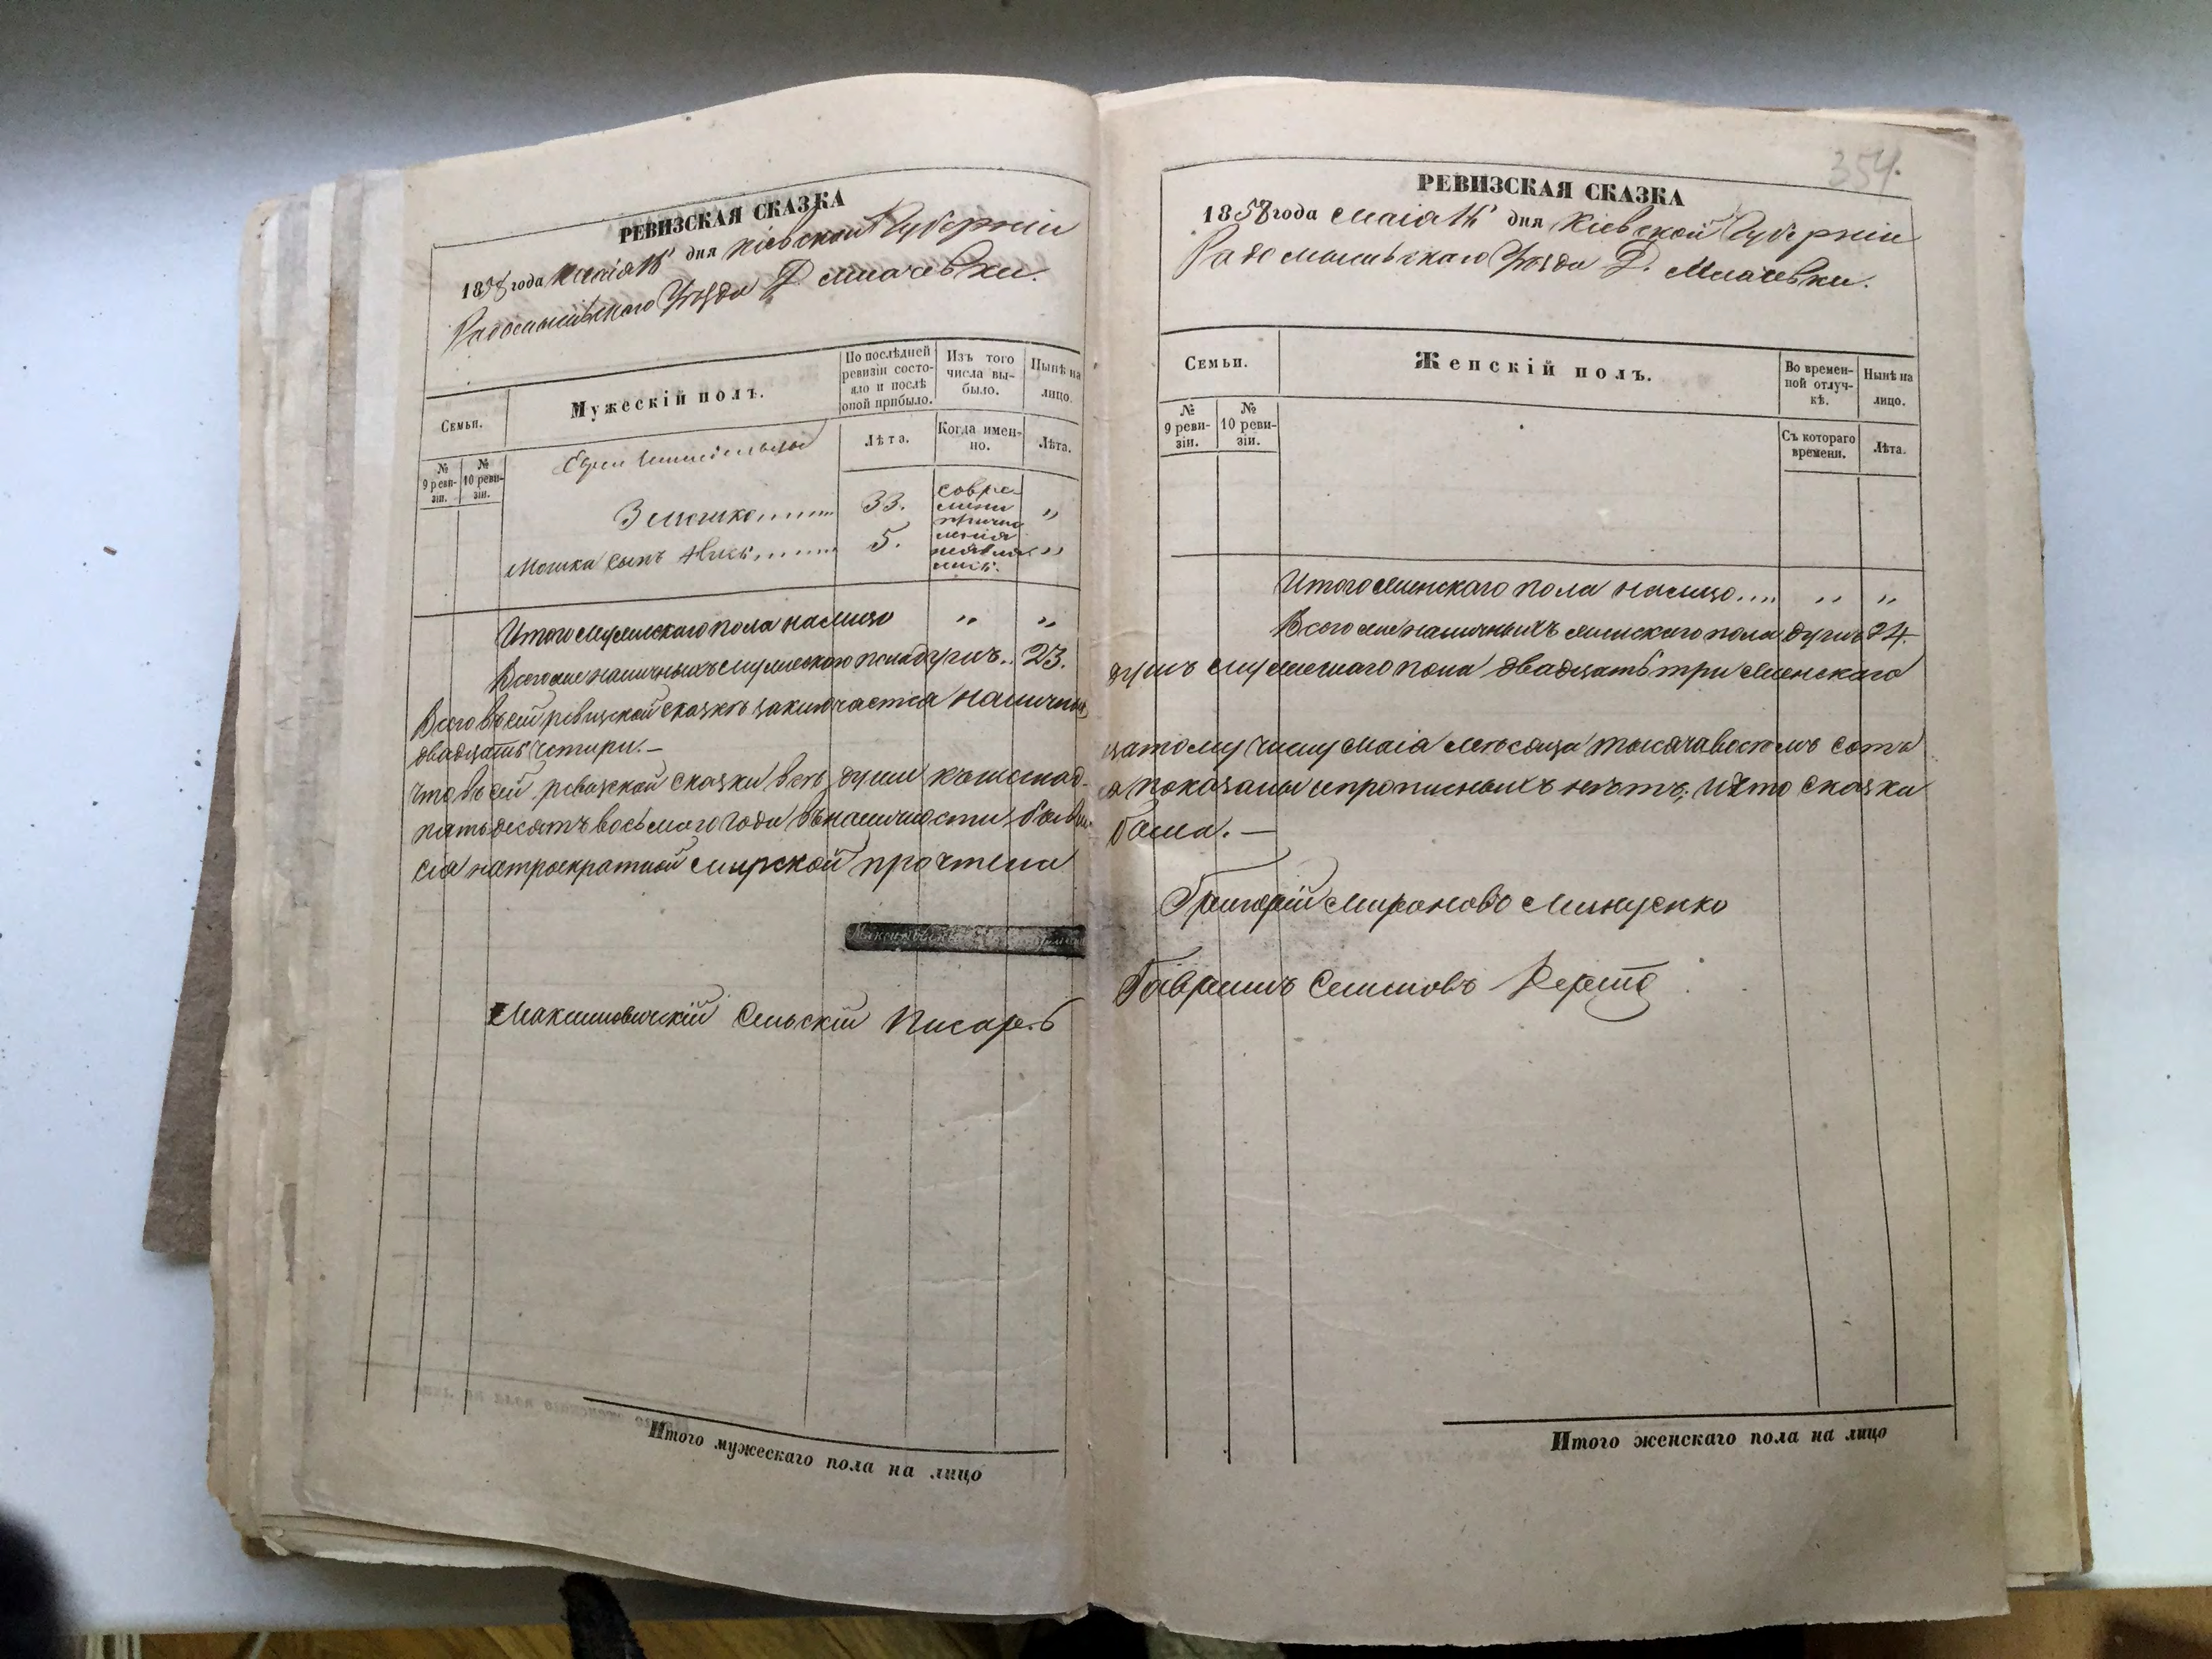 РЕВИЗСКАЯ СКАЗКА
1858 года Маія 16 дня Кіевской Губерніи
Радомысльскаго Уѣзда Д. Мигачевки.
Семьи.
Мужескій полъ.
По послѣдней ревизіи состояло и послѣ оной прибыло.
Изъ того числа выбыло.
Нынѣ на лицо.
№ 9 ревизіи.
№ 10 ревизіи.
Лѣта.
Когда именно.
Лѣта.
Евреи
3 Мошко......... 33. современи причисленія неявились. „
Мошка сынъ ........ 5. „
Итого мужескаго пола налицо „ „
Всего же наличныхъ мужескаго пола душъ.. 23.
Всего въ сей ревизской сказкѣ заключается наличныхъ
двадцать четыри.—
Что въ сей ревизской сказки всѣ души къ шестнад-
пятьдесятъ восьмого года въ наличности бывші
сія на троекратной мирской прочтена
Максимовичскій Сельскій Писарь
354.
РЕВИЗСКАЯ СКАЗКА
1858 года Маія 16 дня Кіевской Губерніи
Радомысльскаго Уѣзда Д. Мигачевки.
Семьи.
Женскій полъ.
Во временной отлучкѣ.
Нынѣ на лицо.
№ 9 ревизіи.
№ 10 ревизіи.
Съ котораго времени.
Лѣта.
Итого женскаго пола налицо.... „ „
Всего же наличныхъ женскаго пола душъ 24.
душъ мужескаго пола двадцать три женскаго
цатому числу маія мѣсяца тысяча восемь сотъ
а показаны и прописныхъ нѣтъ; и что сказка
была.—
Григорій Мироновъ
Гаврилъ Семеновъ
Итого мужескаго пола на лицо
Итого женскаго пола на лицо